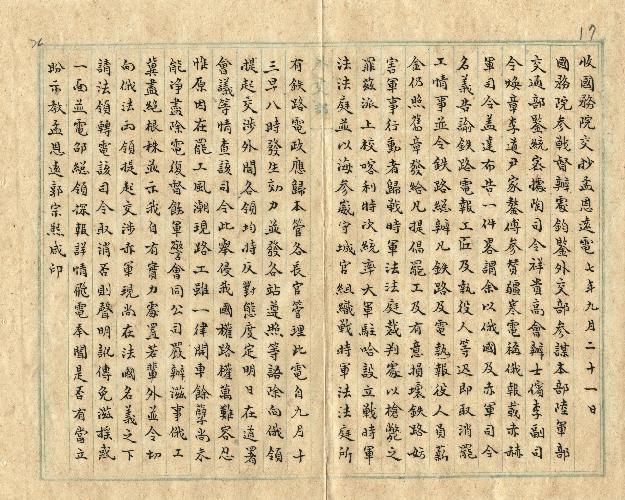 17
收國務院交抄孟恩遠電 七年九月二十一日
國務院參戰督辦處鈞鑒外交部參謀本部陸軍部
交通部鑒統密據陶司令祥貴高會辦士儐李副司
令煥章李道尹家鏊傅參贊疆寒電稱俄報載赤赫
軍司令蓋達布告一件畧謂余以俄國及赤軍司令
名義告諭鐵路電報工匠及執役人等迅即取消罷
工情事並令鐵路總辦凡鐵路及電報執役人員薪
金仍照舊章發給凡提倡罷工及有意損壞鐵路妨
害軍事行動者歸戰時軍法法庭裁判處以槍斃之
罪茲派上校喀利時次統率大軍駐哈設立戰時軍
法法庭並以海參崴守城官組織戰時軍法法庭所
有鐵路電政應歸本管各長官管理此電自九月十
三早八時發生効力並發各站遵照等語除向俄領
提起交涉外聞各領均持反對態度定明日在道署
會議等情查該司令此舉侵我國權路權萬難容忍
惟原因在罷工風潮現路工雖一律開車餘孽尚未
能淨盡除電復督飭軍警會同公司嚴辦滋事俄工
冀盡絕根株並示我自有實力處置若輩外並令切
向俄法兩領提起交涉赤軍現尚在法國名義之下
請法領轉電該司令取消否則聲明訊傳免滋搖惑
一面並電邵總領探報詳情飛電奉聞是否有當立
盼示教孟恩遠郭宗熙咸印